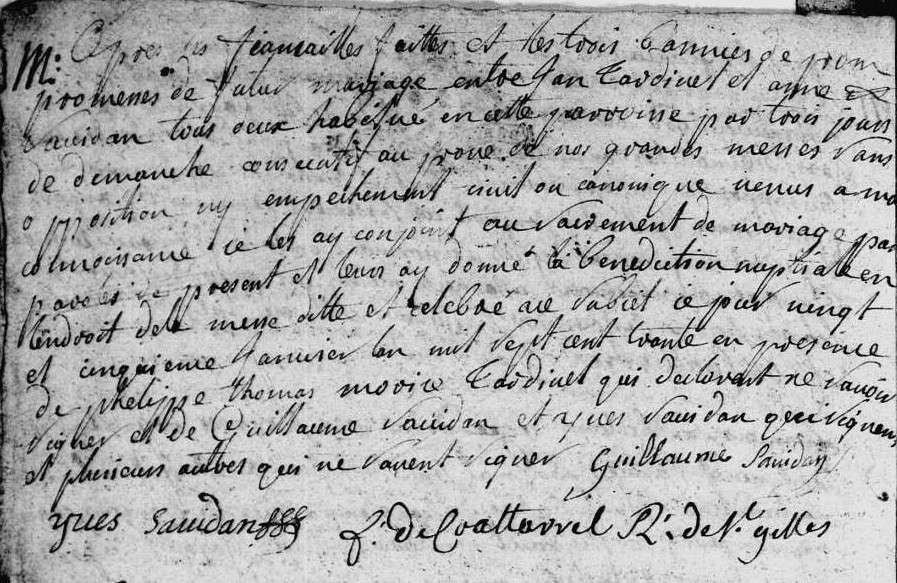 M: Apres les fiansailles faittes et les trois bannies de prom
promesses de futur mariage entre Jan Tardivel et anne
Sauidan tous deux habitué en cette parroisse par trois jours
de dimanche consecutif au prone de nos grandes messes sans
opposition ny empechement ciuil ou canonique uenus a ma
connoissance ie les ay conjoint au sacrement de mariage par
paroles de present et leurs ay donné la benediction nuptialle en
lendroit de la messe ditte et celebré au subiet ce jour uingt
et cinquieme Januier lan mil sept cent trante en presence
de phelippe thomas morice Tardivel qui declarent ne sauoir
signer et de Guillaume sauidan et yues sauidan qui signent
et plusieurs autres qui ne sauent signer Guillaume Sauidan
yues sauidan f. de Coattarel Rr. de St. gilles